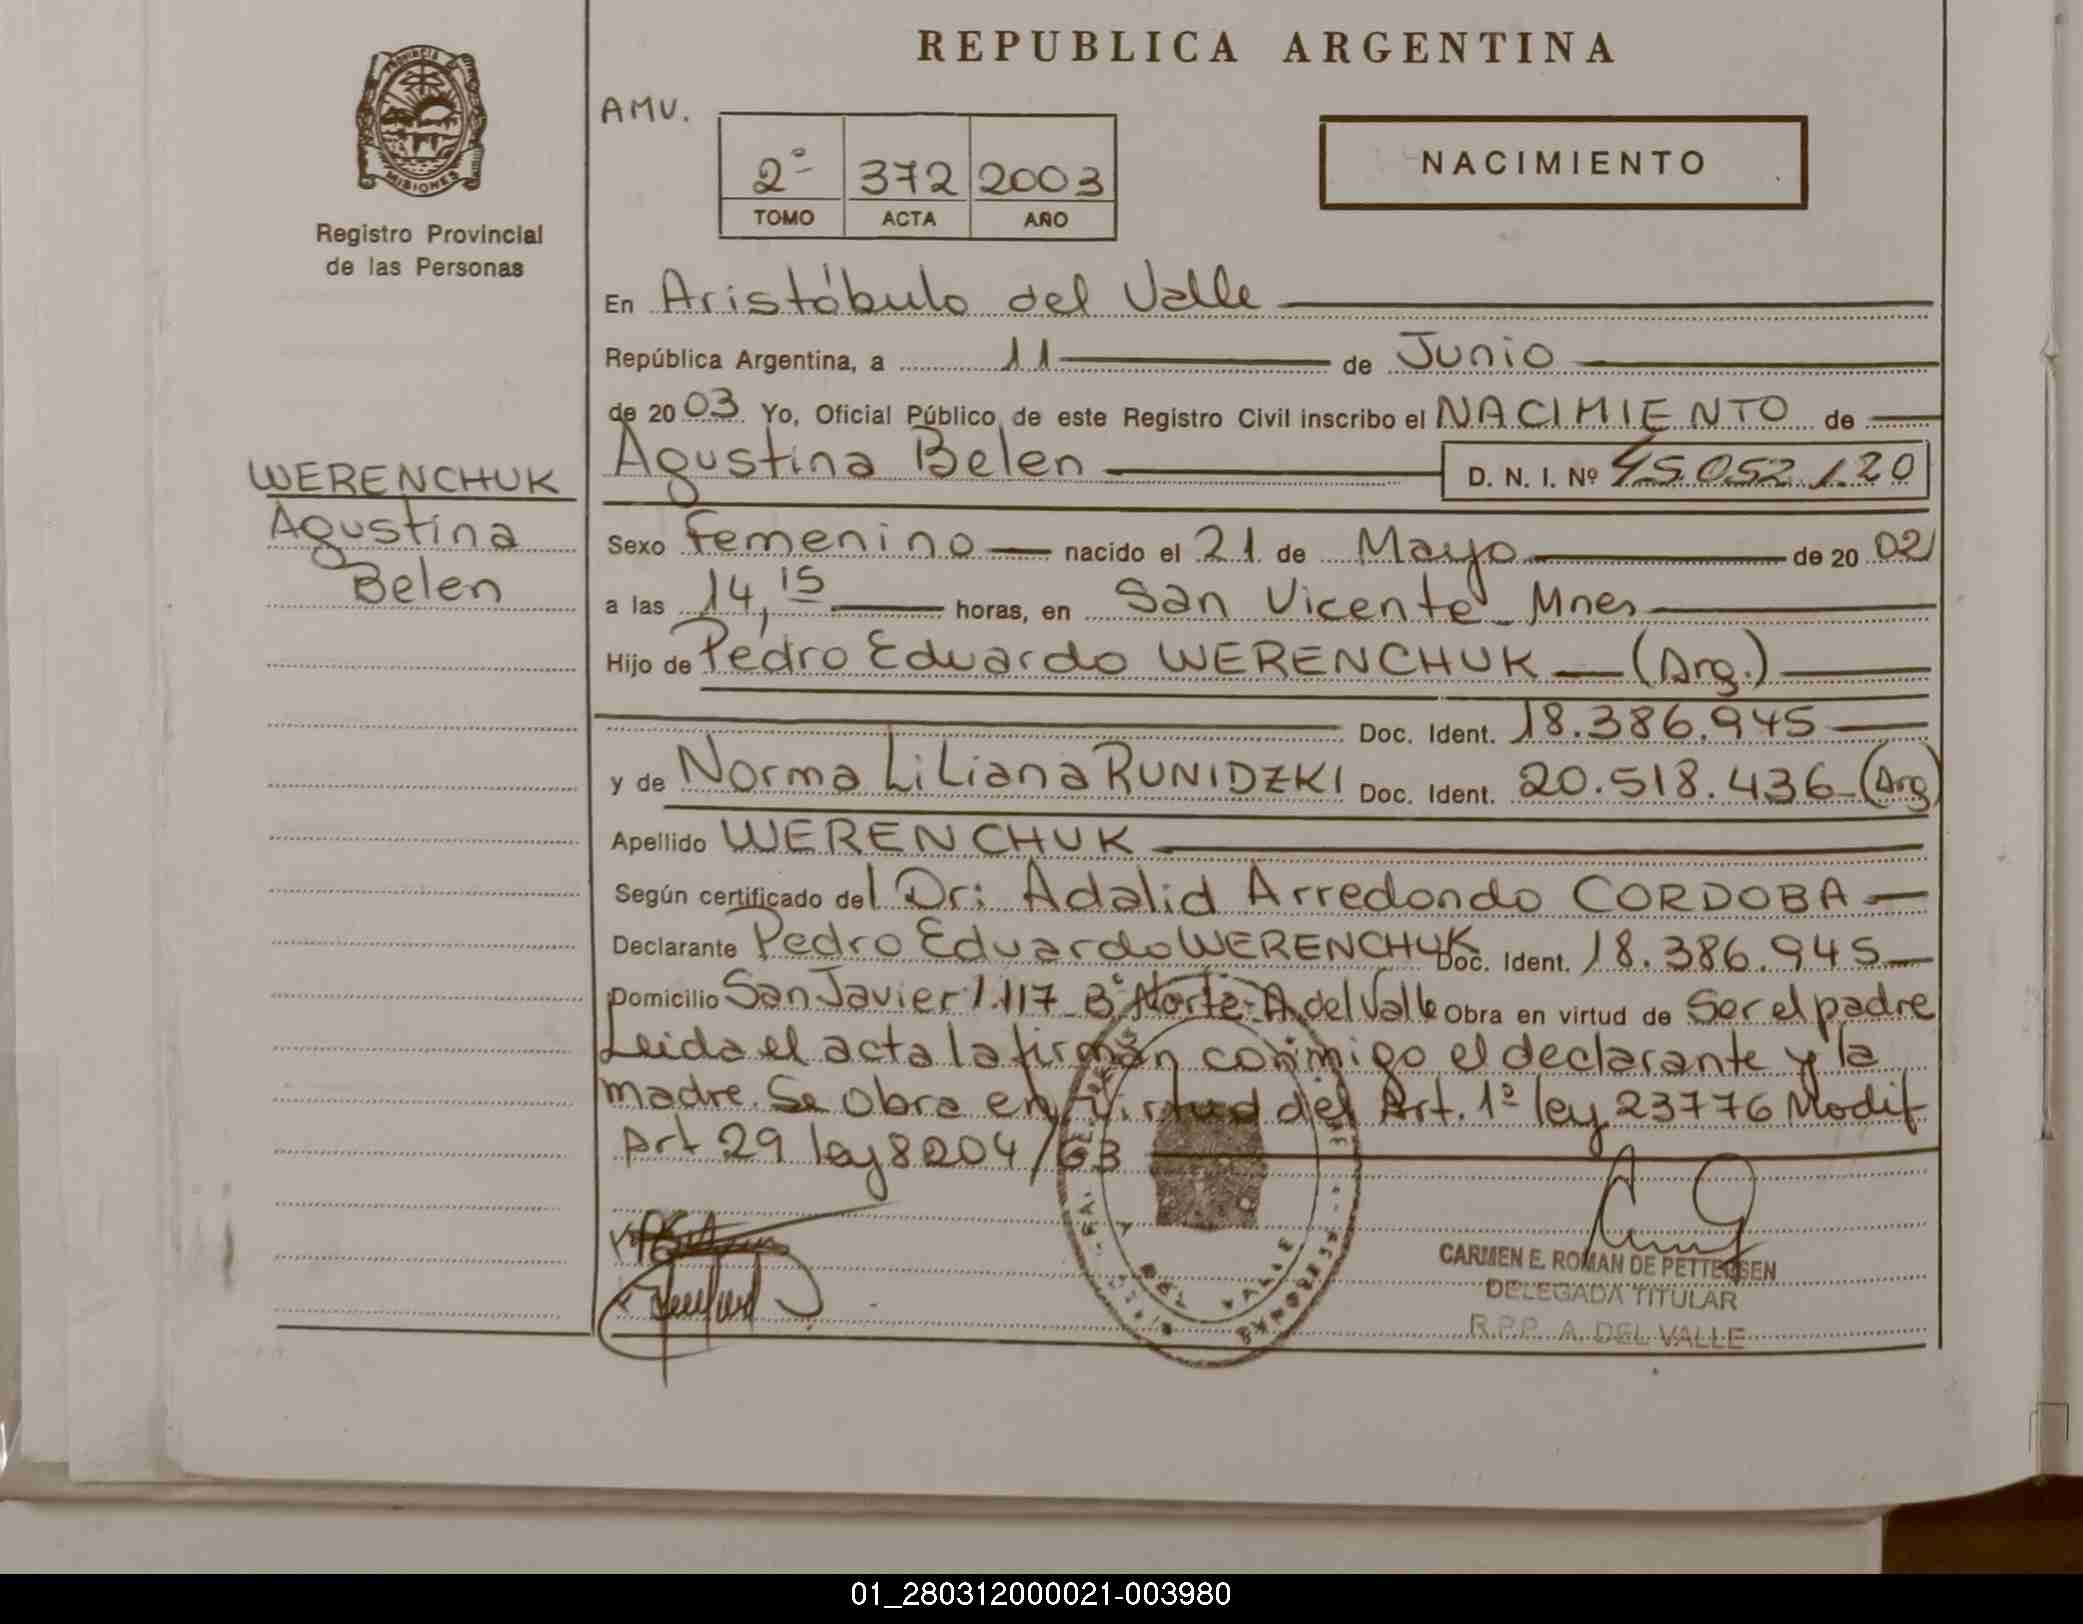 REPUBLICA ARGENTINA
PROVINCIA DE
MISIONES
Registro Provincial
de las Personas
AMV.
2º 372 2003
TOMO ACTA AÑO
NACIMIENTO
En Aristóbulo del Valle
República Argentina, a 11 de Junio
de 20 03 Yo, Oficial Público de este Registro Civil inscribo el NACIMIENTO de
Agustina Belen D. N. I. Nº 45.052.120
WERENCHUK
Agustina
Belen
Sexo Femenino nacido el 21 de Mayo de 20 02
a las 14,15 horas, en San Vicente Mnes
Hijo de Pedro Eduardo WERENCHUK (Arg.)
Doc. Ident. 18.386.945
y de Norma Liliana RUNIDZKI Doc. Ident. 20.518.436 (Arg)
Apellido WERENCHUK
Según certificado del Dr: Adalid Arredondo CORDOBA
Declarante Pedro Eduardo WERENCHUK Doc. Ident. 18.386.945
Domicilio San Javier 1.117 Bº Norte A. del Valle Obra en virtud de Ser el padre
Leida el acta la firman conmigo el declarante y la
madre. Se obra en virtud del Art. 1º ley 23776 Modif
Art 29 ley 8204/63
DEL VALLE
CARMEN E. ROMAN DE PETTERSEN
DELEGADA TITULAR
R.P.P. A. DEL VALLE
01_280312000021-003980